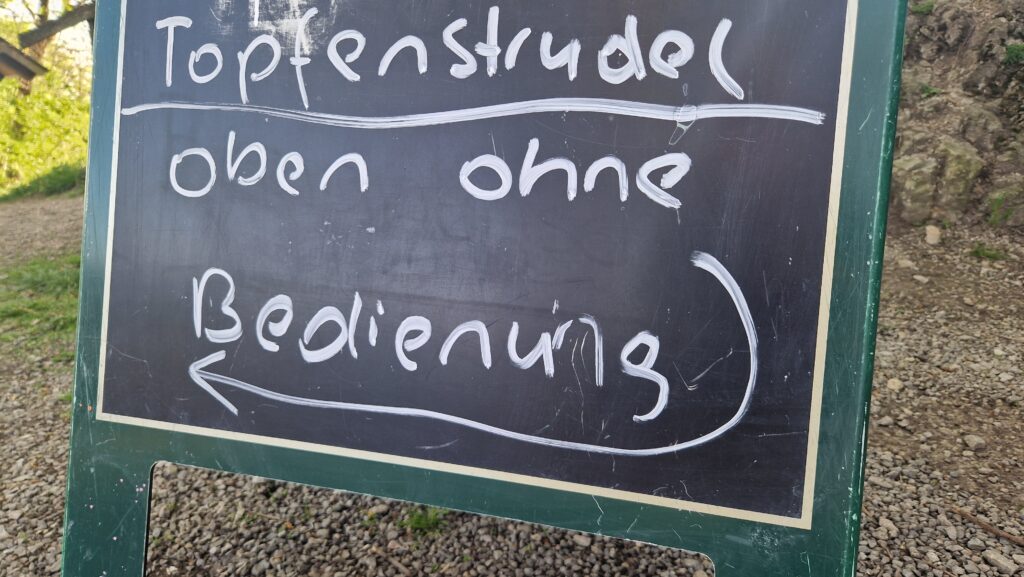 Topfenstrudel
oben ohne
Bedienung